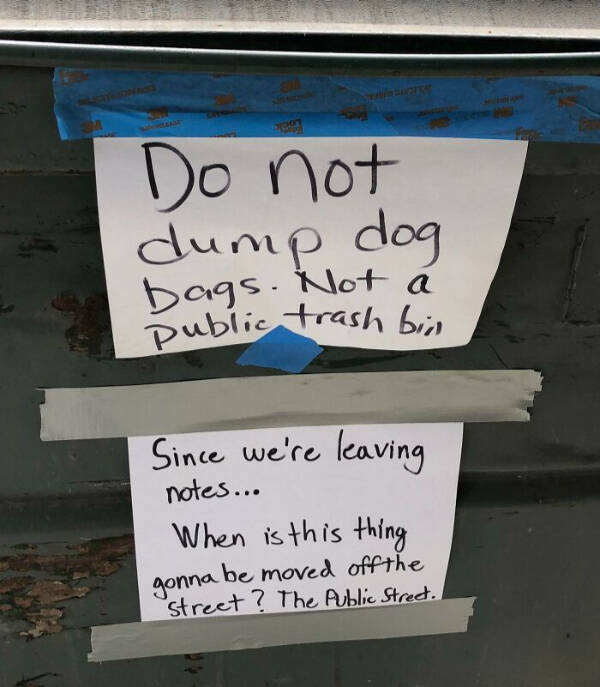 Do not
dump dog
bags. Not a
public trash bin
Since we're leaving
notes...
When is this thing
gonna be moved off the
street? The Public Street.